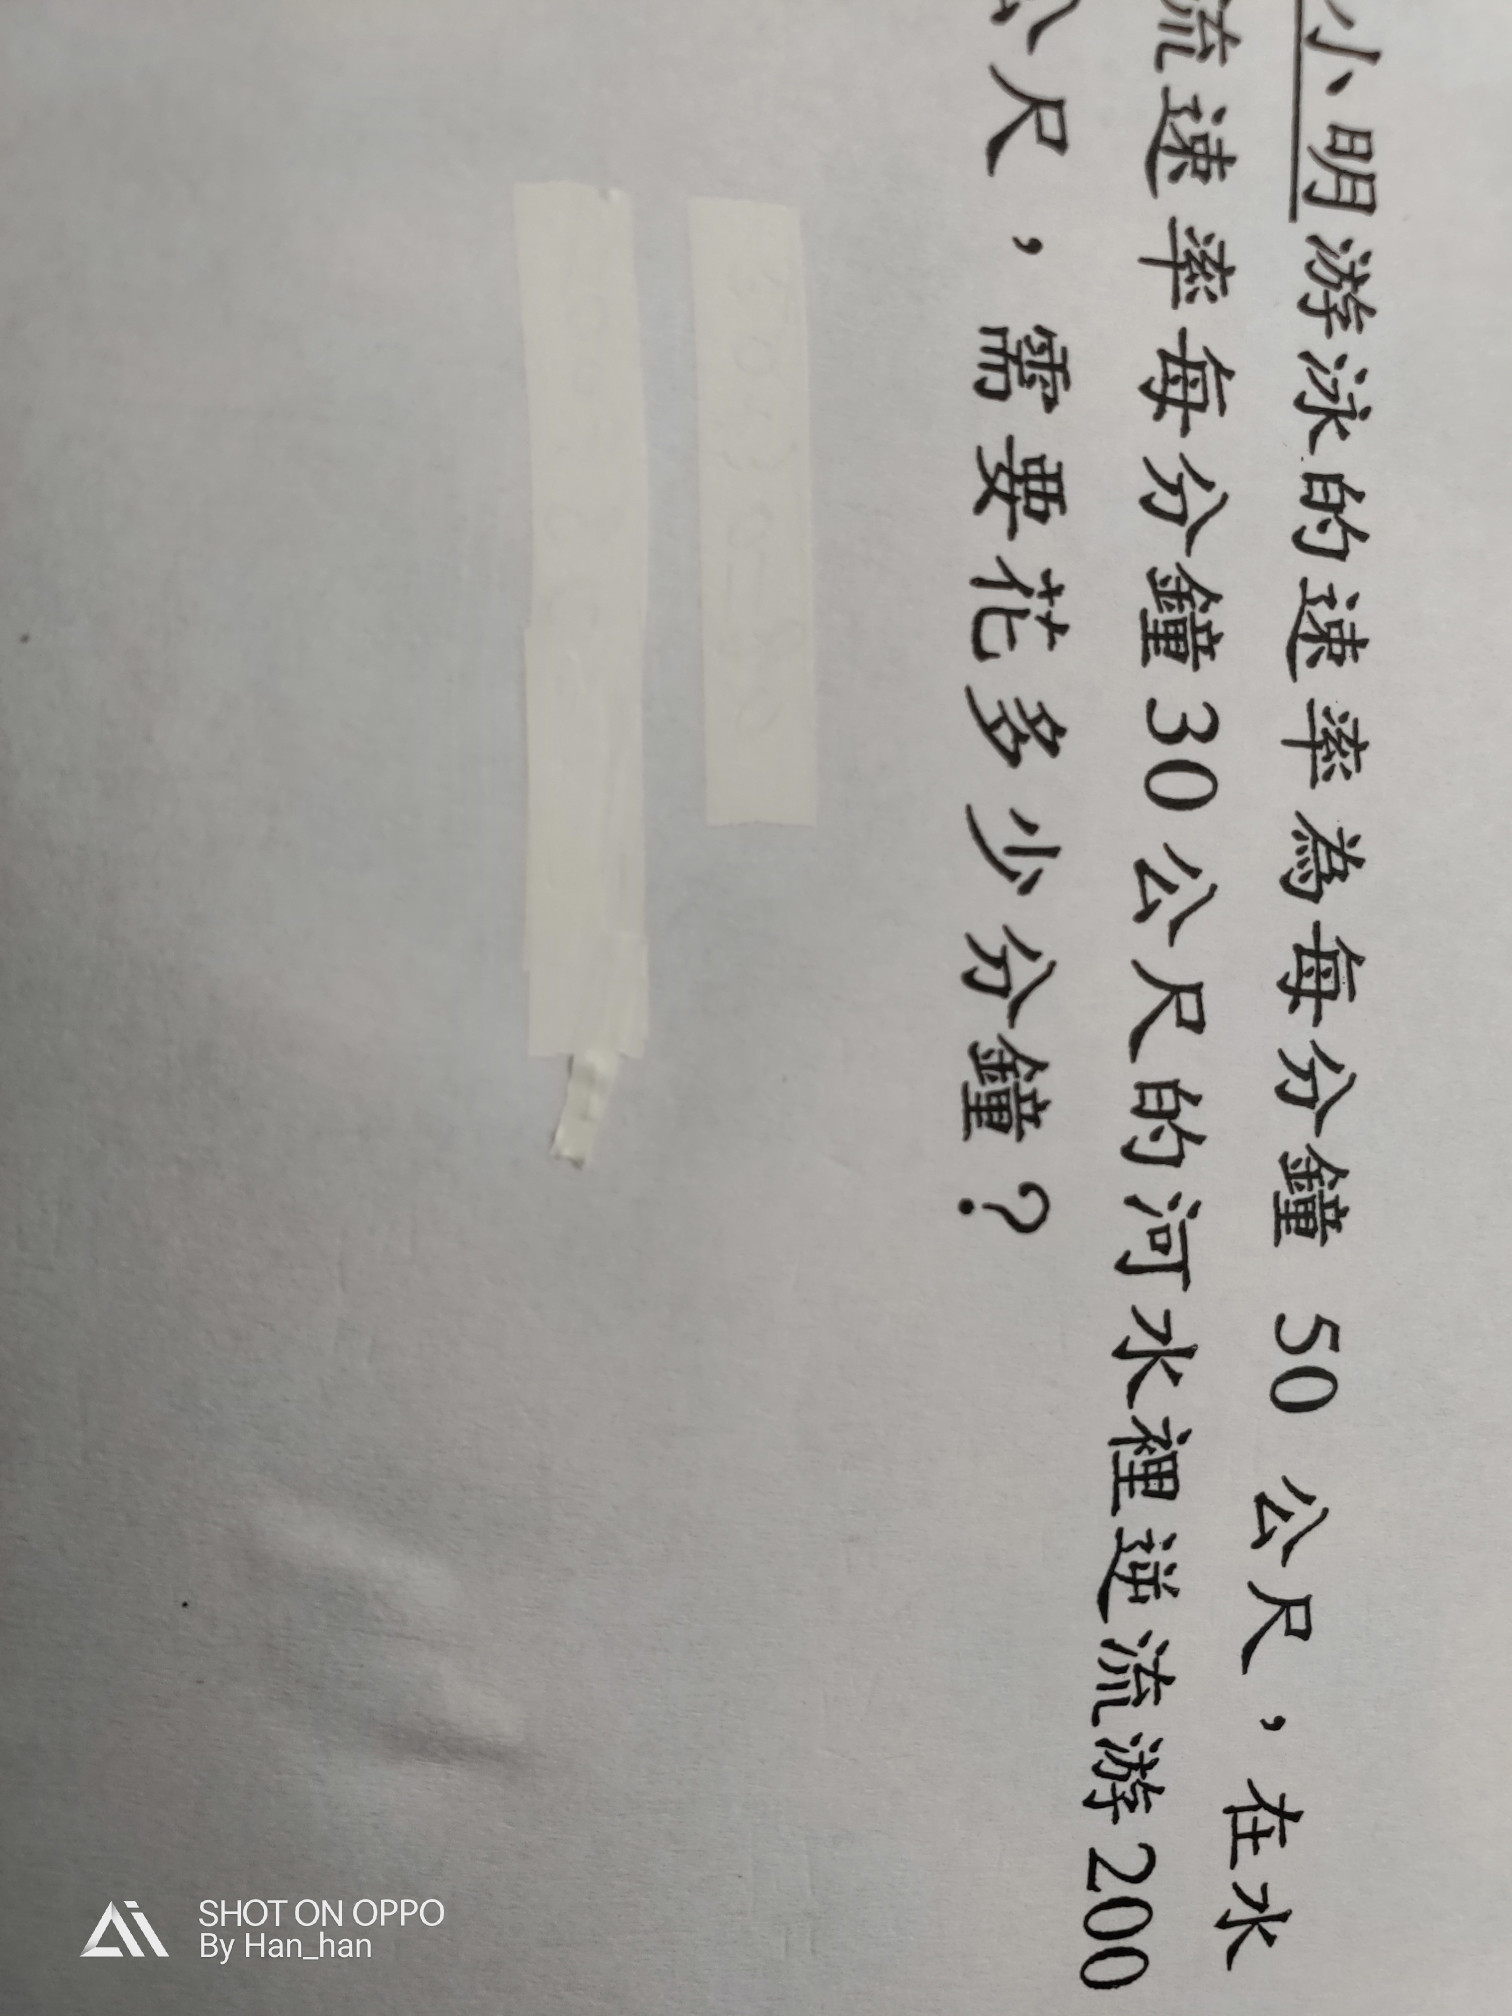 小明游泳的速率為每分鐘 50 公尺，在水
流速率每分鐘30公尺的河水裡逆流游200
公尺，需要花多少分鐘？
SHOT ON OPPO
By Han_han